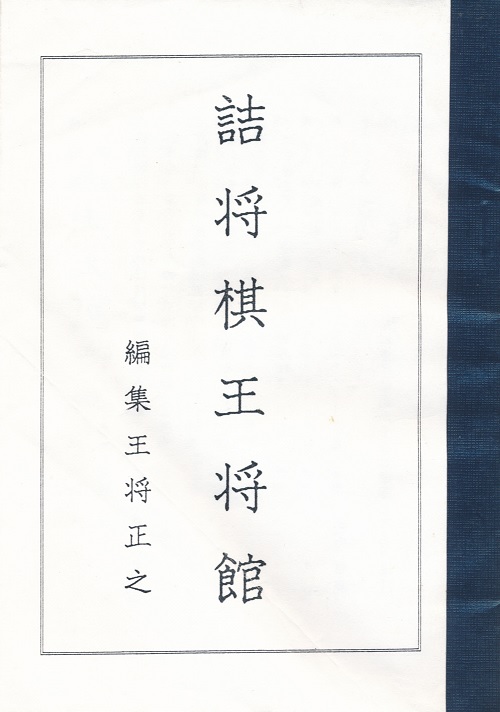 詰将棋王将館
編集王将正之